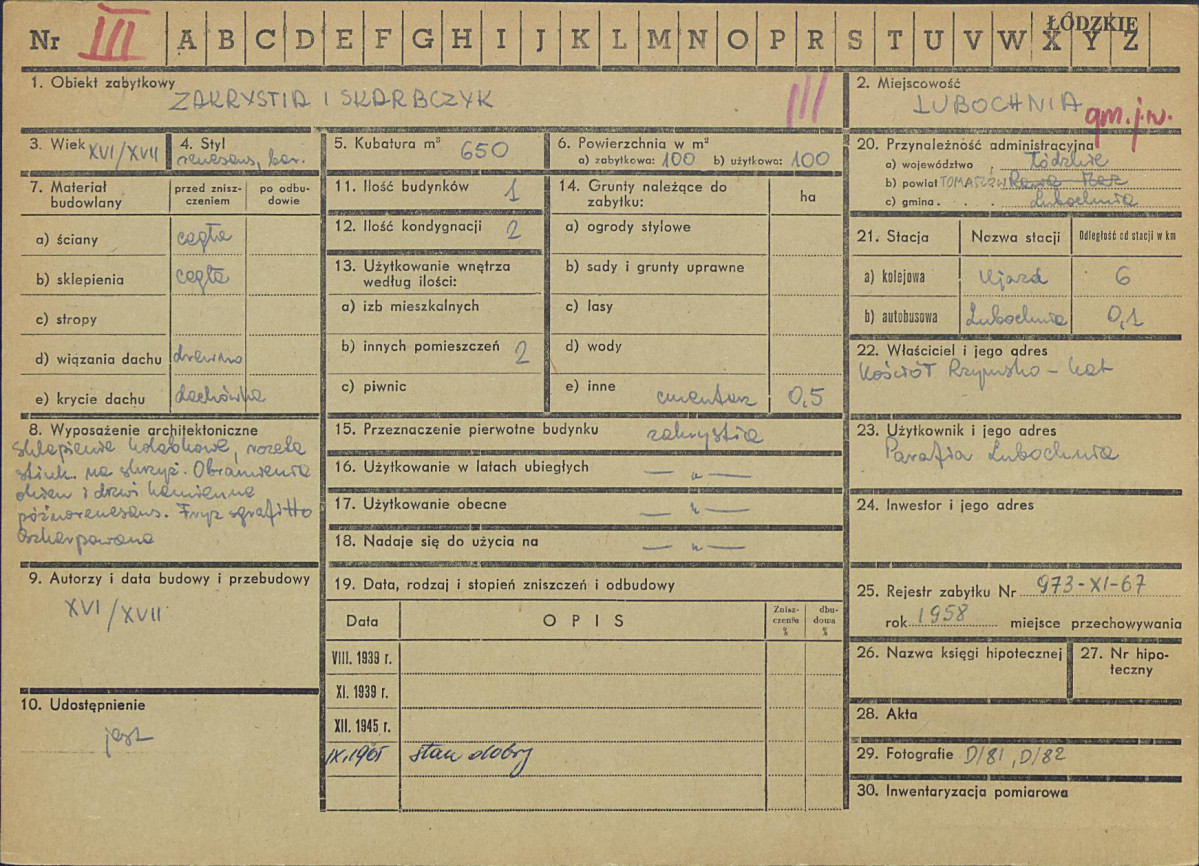 ŁÓDZKIE
Nr III A B C D E F G H I J K L M N O P R S T U V W X Y Z
1. Obiekt zabytkowy
ZAKRYSTIA I SKARBCZYK III
2. Miejscowość
LUBOCHNIA
gm. j.w.
3. Wiek XVI/XVII
4. Styl
renesans, bar.
5. Kubatura m³ 650
6. Powierzchnia w m²
a) zabytkowa: 100 b) użytkowa: 100
7. Materiał budowlany
przed zniszczeniem
po odbudowie
a) ściany cegła
b) sklepienia cegła
c) stropy
d) wiązania dachu drewno
e) krycie dachu dachówka
8. Wyposażenie architektoniczne
Sklepienie kolebkowe, rozeta
stiuk. na skrzyż. Obramienia
okien i drzwi kamienne
późnorenesans. Fryz sgrafitto
Oszkarpowana
9. Autorzy i data budowy i przebudowy
XVI/XVII
10. Udostępnienie
jest
11. Ilość budynków 1
12. Ilość kondygnacji 2
13. Użytkowanie wnętrza
według ilości:
a) izb mieszkalnych
b) innych pomieszczeń 2
c) piwnic
14. Grunty należące do
zabytku:
ha
a) ogrody stylowe
b) sady i grunty uprawne
c) lasy
d) wody
e) inne cmentarz 0,5
15. Przeznaczenie pierwotne budynku zakrystia
16. Użytkowanie w latach ubiegłych — „ —
17. Użytkowanie obecne — „ —
18. Nadaje się do użycia na — „ —
19. Data, rodzaj i stopień zniszczeń i odbudowy
Data
OPIS
Zniszczenia %
dbudowa %
VIII. 1939 r.
XI. 1939 r.
XII. 1945 r.
IX.1965 stan dobry
20. Przynależność administracyjna
a) województwo . Łódzkie
b) powiat TOMASZÓW Rawa Maz
c) gmina . . . . Lubochnia
21. Stacja
Nazwa stacji
Odległość od stacji w km
a) kolejowa Ujazd 6
b) autobusowa Lubochnia 0,1
22. Właściciel i jego adres
Kościół Rzymsko-Kat
23. Użytkownik i jego adres
Parafia Lubochnia
24. Inwestor i jego adres
25. Rejestr zabytku Nr 973-XI-67
rok 1958 miejsce przechowywania
26. Nazwa księgi hipotecznej
27. Nr hipoteczny
28. Akta
29. Fotografie D/81, D/82
30. Inwentaryzacja pomiarowa